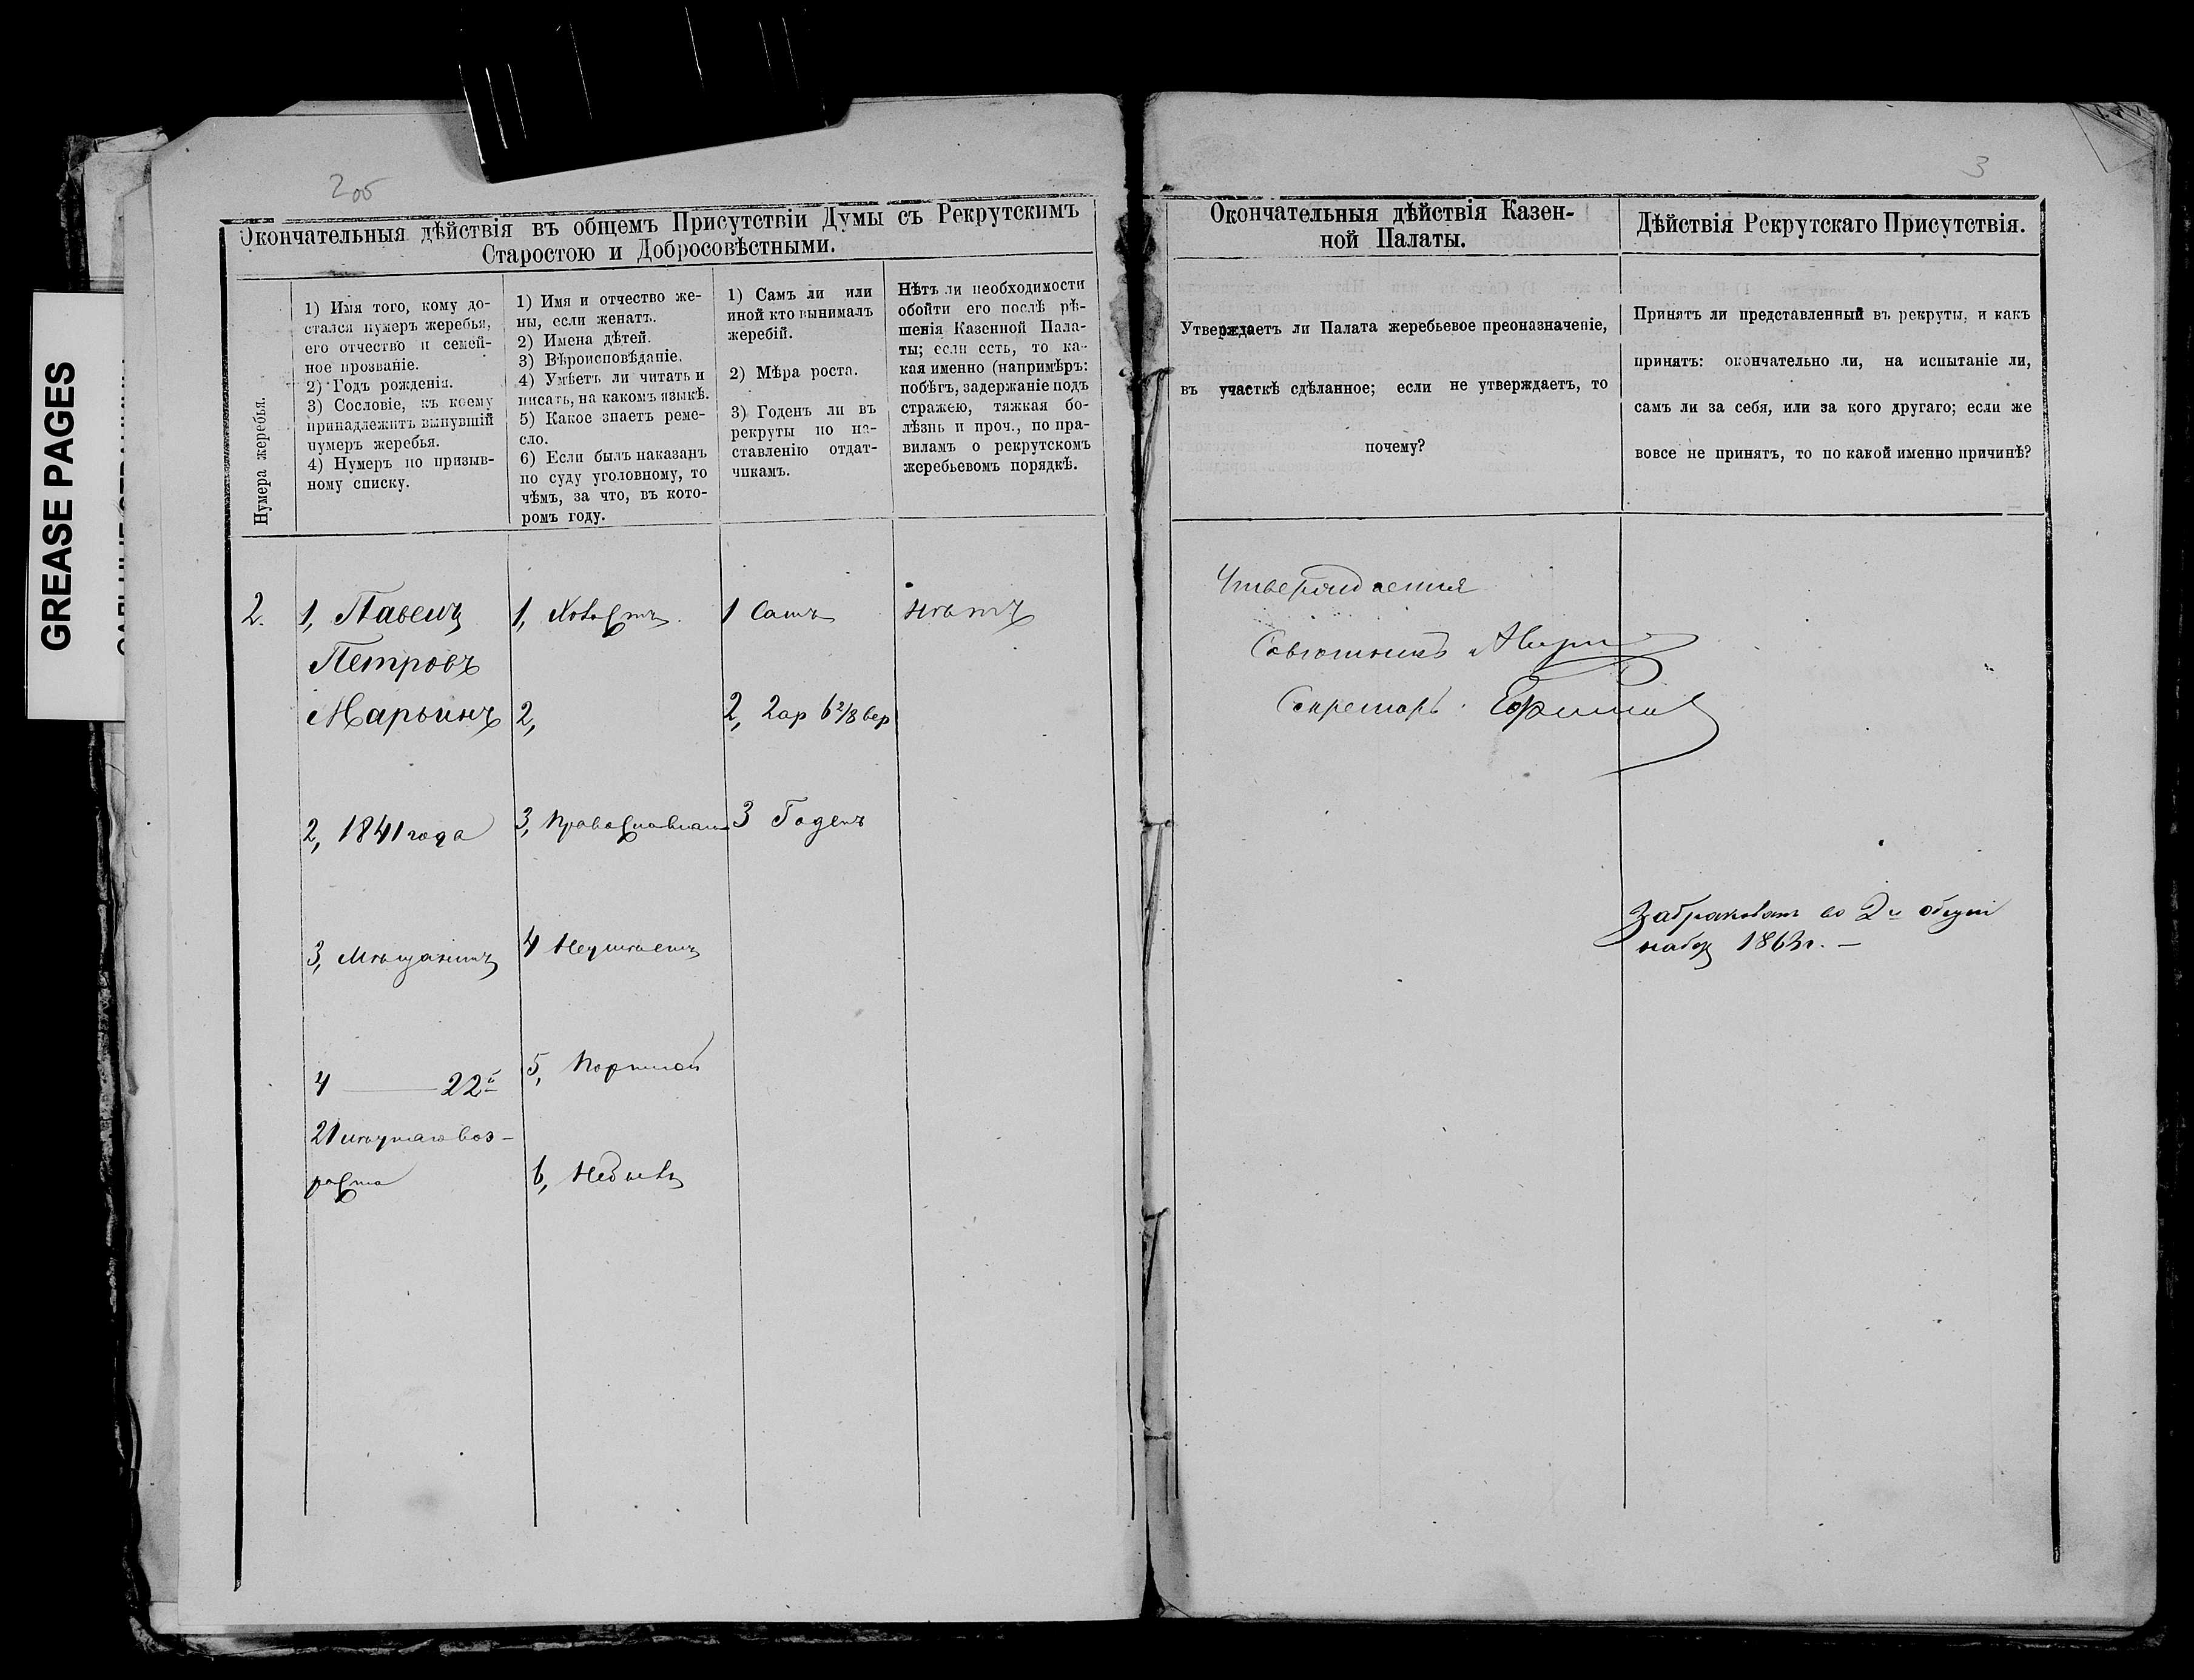 GREASE PAGES
2об
Окончательныя дѣйствія въ общемъ Присутствіи Думы съ Рекрутскимъ
Старостою и Добросовѣстными.
Нумера жеребья.
1) Имя того, кому до-
стался нумеръ жеребья,
его отчество и семей-
ное прозваніе.
2) Годъ рожденія.
3) Сословіе, къ коему
принадлежитъ вынувшій
нумеръ жеребья.
4) Нумеръ по призыв-
ному списку.
1) Имя и отчество же-
ны, если женатъ.
2) Имена дѣтей.
3) Вѣроисповѣданіе.
4) Умѣетъ ли читать и
писать, на какомъ языкѣ.
5) Какое знаетъ реме-
сло.
6) Если былъ наказанъ
по суду уголовному, то
чѣмъ, за что, въ кото-
ромъ году.
1) Самъ ли или
иной кто вынималъ
жеребій.
2) Мѣра роста.
3) Годенъ ли въ
рекруты по на-
ставленію отдат-
чикамъ.
Нѣтъ ли необходимости
обойти его послѣ рѣ-
шенія Казенной Пала-
ты; если есть, то ка-
кая именно (напримѣръ:
побѣгъ, задержаніе подъ
стражею, тяжкая бо-
лѣзнь и проч., по пра-
виламъ о рекрутскомъ
жеребьевомъ порядкѣ.
2.
1, Павелъ
Петровъ
Марьинъ
2, 1841 года
3, Мѣщанинъ
4 — 22й
21 лѣтняго воз-
раста
1, Холостъ.
2,
3, Православнаго
4 Неумѣетъ
5, Портной
6, Небылъ
1 Самъ
2, 2 ар 6 2/8 вер
3 Годенъ
Нѣтъ
3
Окончательныя дѣйствія Казен-
ной Палаты.
Утверждаетъ ли Палата жеребьевое преоназначеніе,
въ участкѣ сдѣланное; если не утверждаетъ, то
почему?
Утверждается
Совѣтникъ
Секретарь
Дѣйствія Рекрутскаго Присутствія.
Принятъ ли представленный въ рекруты, и какъ
принятъ: окончательно ли, на испытаніе ли,
самъ ли за себя, или за кого другаго; если же
вовсе не принятъ, то по какой именно причинѣ?
Забракованъ во 2й общій
наборъ 1863 г. —